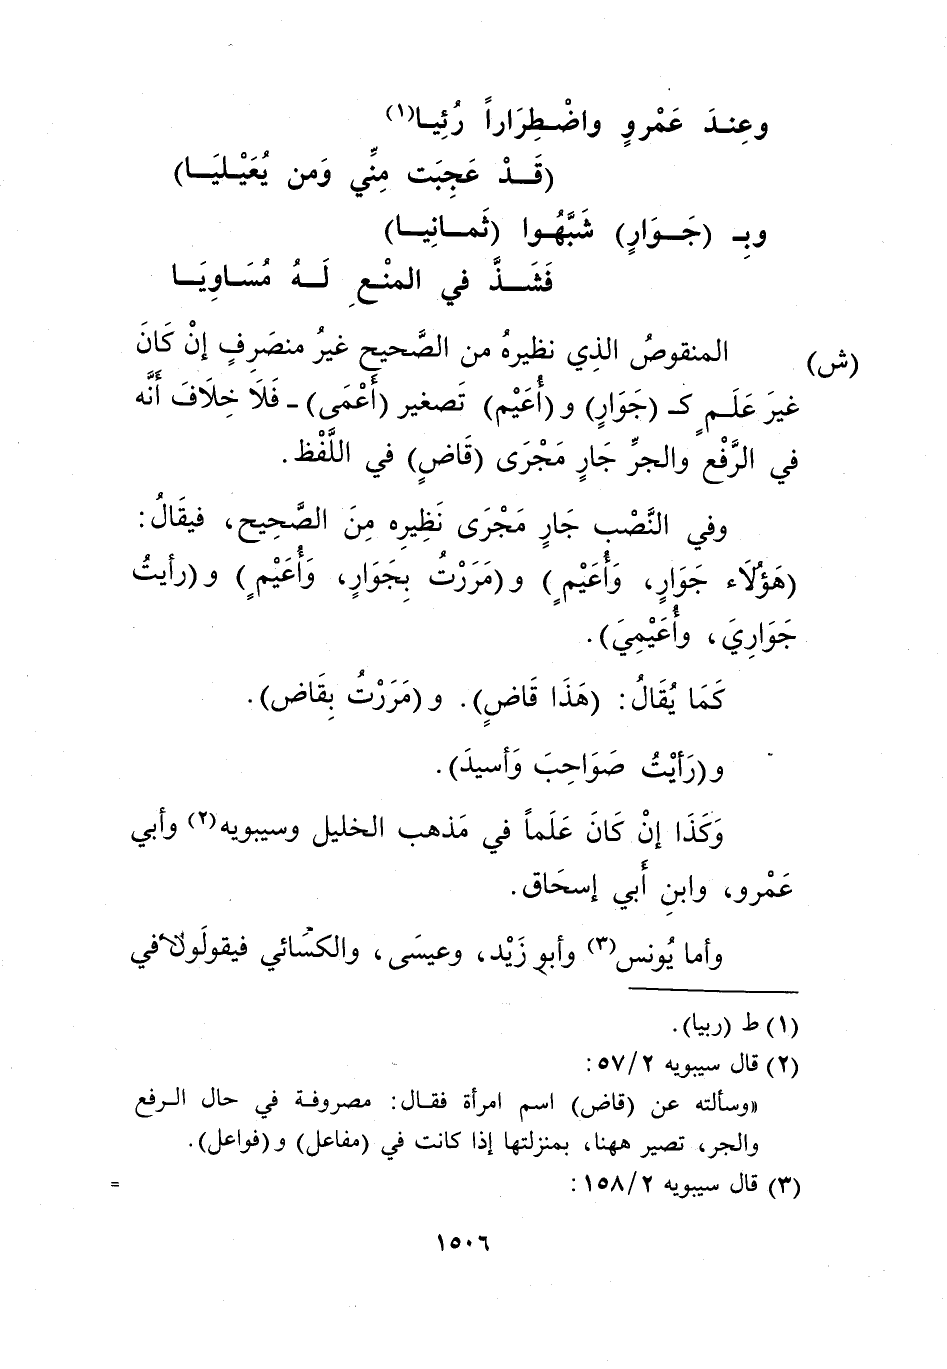 وعِنـدَ عَمْروٍ واضْـطِرَاراً رُئِيـا(١)
(قَــدْ عَجِبَت مِنِّي وَمن يُعَيْـلِيَــا)
وبِـ (جَــوَارٍ) شَبَّهُـوا (ثَمــانِيــا)
فَشَــذَّ في المنْـعِ لَــهُ مُسَــاوِيَــا
(ش) المنقوصُ الذِي نظيرهُ من الصَّحيح غيرُ منصَرِفٍ إنْ كَانَ
غيرَ عَلَـمٍ كـ (جَوَارٍ) و(أُعَيْم) تَصغير (أَعْمَى) - فَلَا خِلَافَ أَنَّه
في الرَّفْع والجرِّ جَارٍ مَجْرَى (قَاضٍ) في اللَّفْظ.
وفي النَّصْب جَارٍ مَجْرَى نَظِيرِه مِنَ الصَّحِيح، فيقَالُ:
(هَؤُلَاء جَوَارٍ، وَأُعَيْمٍ) و(مَرَرْتُ بِجَوَارٍ، وَأُعَيْمٍ) و(رأيتُ
جَوَارِيَ، وأُعَيْمِيَ).
كَمَا يُقَالُ: (هَذَا قَاضٍ). و(مَرَرْتُ بِقَاض).
و(رَأيْتُ صَوَاحِبَ وَأسيدَ).
وَكَذَا إنْ كَانَ عَلَماً في مَذهب الخليل وسيبويه(٢) وأبي
عَمْرو، وابنِ أَبي إسحَاق.
وأما يُونس(٣) وأبو زَيْد، وعيسَى، والكسَائي فيقولَون في
(١) ط (ربيا).
(٢) قال سيبويه ٥٧/٢:
«وسألته عن (قاض) اسم امرأة فقـال: مصروفـة في حال الـرفع
والجر، تصير ههنا، بمنزلتها إذا كانت في (مفاعل) و(فواعل).
(٣) قال سيبويه ١٥٨/٢: =
١٥٠٦